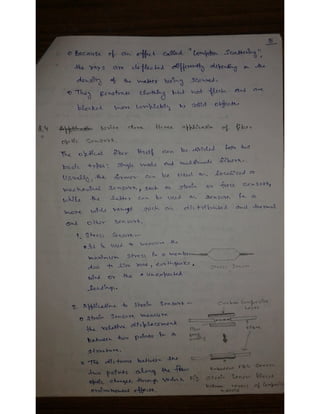 • Because of an effect called "Compton Scattering",
the rays are deflected differently depending on the
density of the matter being scanned.
• They penetrate clothing but not flesh and are
blocked more completely by solid objects.
Q.4 Write down three application of fiber
optic Sensors.
The optical fiber itself can be divided into two
basic types: single mode and multimode fibers.
Usually, the former can be used as localised or
mechanical sensors, such as strain or force sensors,
while the latter can be used as sensors in a
more wide range such as distributed and thermal
and other sensors.
1. Stress Sensor —
• It is used to measure the
maximum stress in a member
due to live load, earthquakes,
wind or the unexpected
loading.
Stress Sensor
2. Application to Strain Sensors —
• Strain sensors measure
the relative displacement
between two points in a
structure.
• The distance between the
two points along the fiber
optic changes through various
environmental effects.
Carbon Composite
Strain Sensor